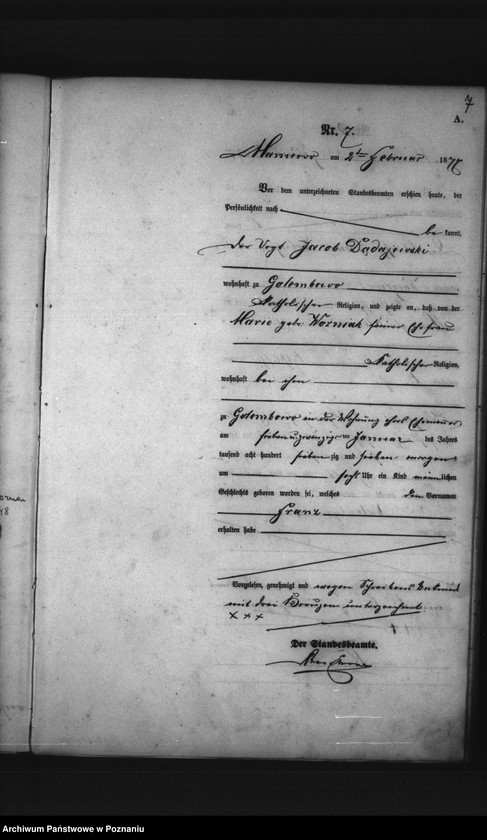 7
A.
Nr. 7.
Mamiewo am 2ten Februar 1877
Vor dem unterzeichneten Standesbeamten erschien heute, der
Persönlichkeit nach
be kannt,
der Vogt Jacob Dadajewski
wohnhaft zu Golembowo
Katholischer Religion, und zeigte an, daß von der
Marie geb. Wozniak seiner Ehefrau
Katholischer Religion,
wohnhaft bei ihm
zu Golembowo in der Wohnung ihres Ehemannes
am siebenundzwanzigsten Januar des Jahres
tausend acht hundert siebenzig und sieben morgens
um sechs Uhr ein Kind männlichen
Geschlechts geboren worden sei, welches den Vornamen
Franz
erhalten habe
Vorgelesen, genehmigt und wegen Schreibens
mit drei Kreuzen unterzeichnet.
× × ×
Der Standesbeamte.
Archiwum Państwowe w Poznaniu